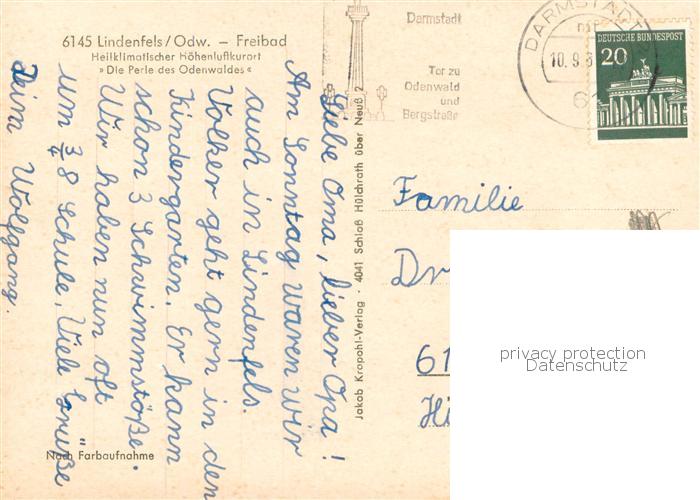 6145 Lindenfels/Odw. – Freibad
Heilklimatischer Höhenluftkurort
» Die Perle des Odenwaldes «
Liebe Oma, lieber Opa!
Am Sonntag waren wir
auch in Lindenfels.
Volker geht gern in den
Kindergarten. Er kann
schon 3 Schwimmstöße.
Wir haben nun oft
um ¾ 8 Schule. Viele Grüße
Dein Wolfgang.
Nach Farbaufnahme
Jakob Krapohl-Verlag · 4041 Schloß Hülchrath über Neuß 2
Darmstadt
Tor zu
Odenwald
und
Bergstraße
DARMSTADT
10.9.
61
DEUTSCHE BUNDESPOST
20
Familie
Dr
61
Hi
privacy protection
Datenschutz